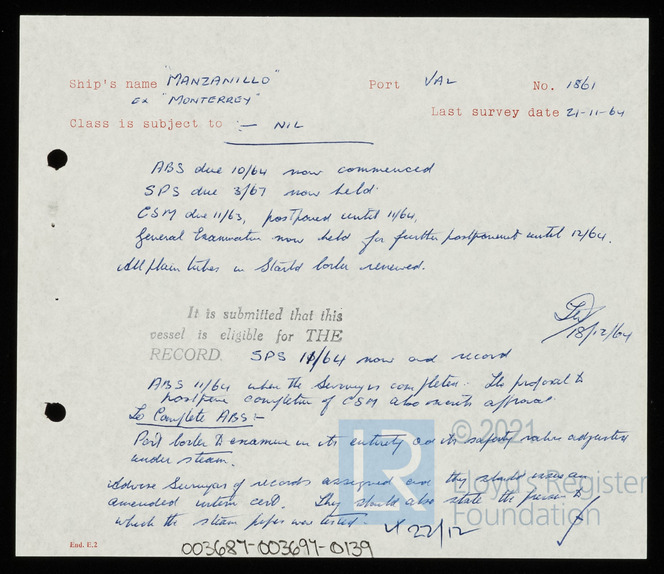 Ship's name "MANZANILLO" Port VAL No. 1861
ex "MONTERREY"
Last survey date 21-11-64
Class is subject to :- NIL
ABS due 10/64 now commenced
SPS due 3/67 now held.
CSM due 11/63, postponed until 11/64,
General Examination now held for further postponement until 12/64.
All plain tubes in Starb'd boiler renewed.
18/12/64
It is submitted that this
vessel is eligible for THE
RECORD. SPS 11/64 now and record
ABS 11/64 when the Surveys completed. The proposal to
postpone completion of CSM also merits approval
To Complete ABS:-
Port boiler to examine in its entirety and its safety valves adjusted
under steam.
Advise Surveyors of records assigned and they should issue an
amended interim cert. They should also state the pressure to
which the steam pipes were tested.
22/12
© 2021
LR
Lloyd's Register
Foundation
End. E.2
003687-003697-0139